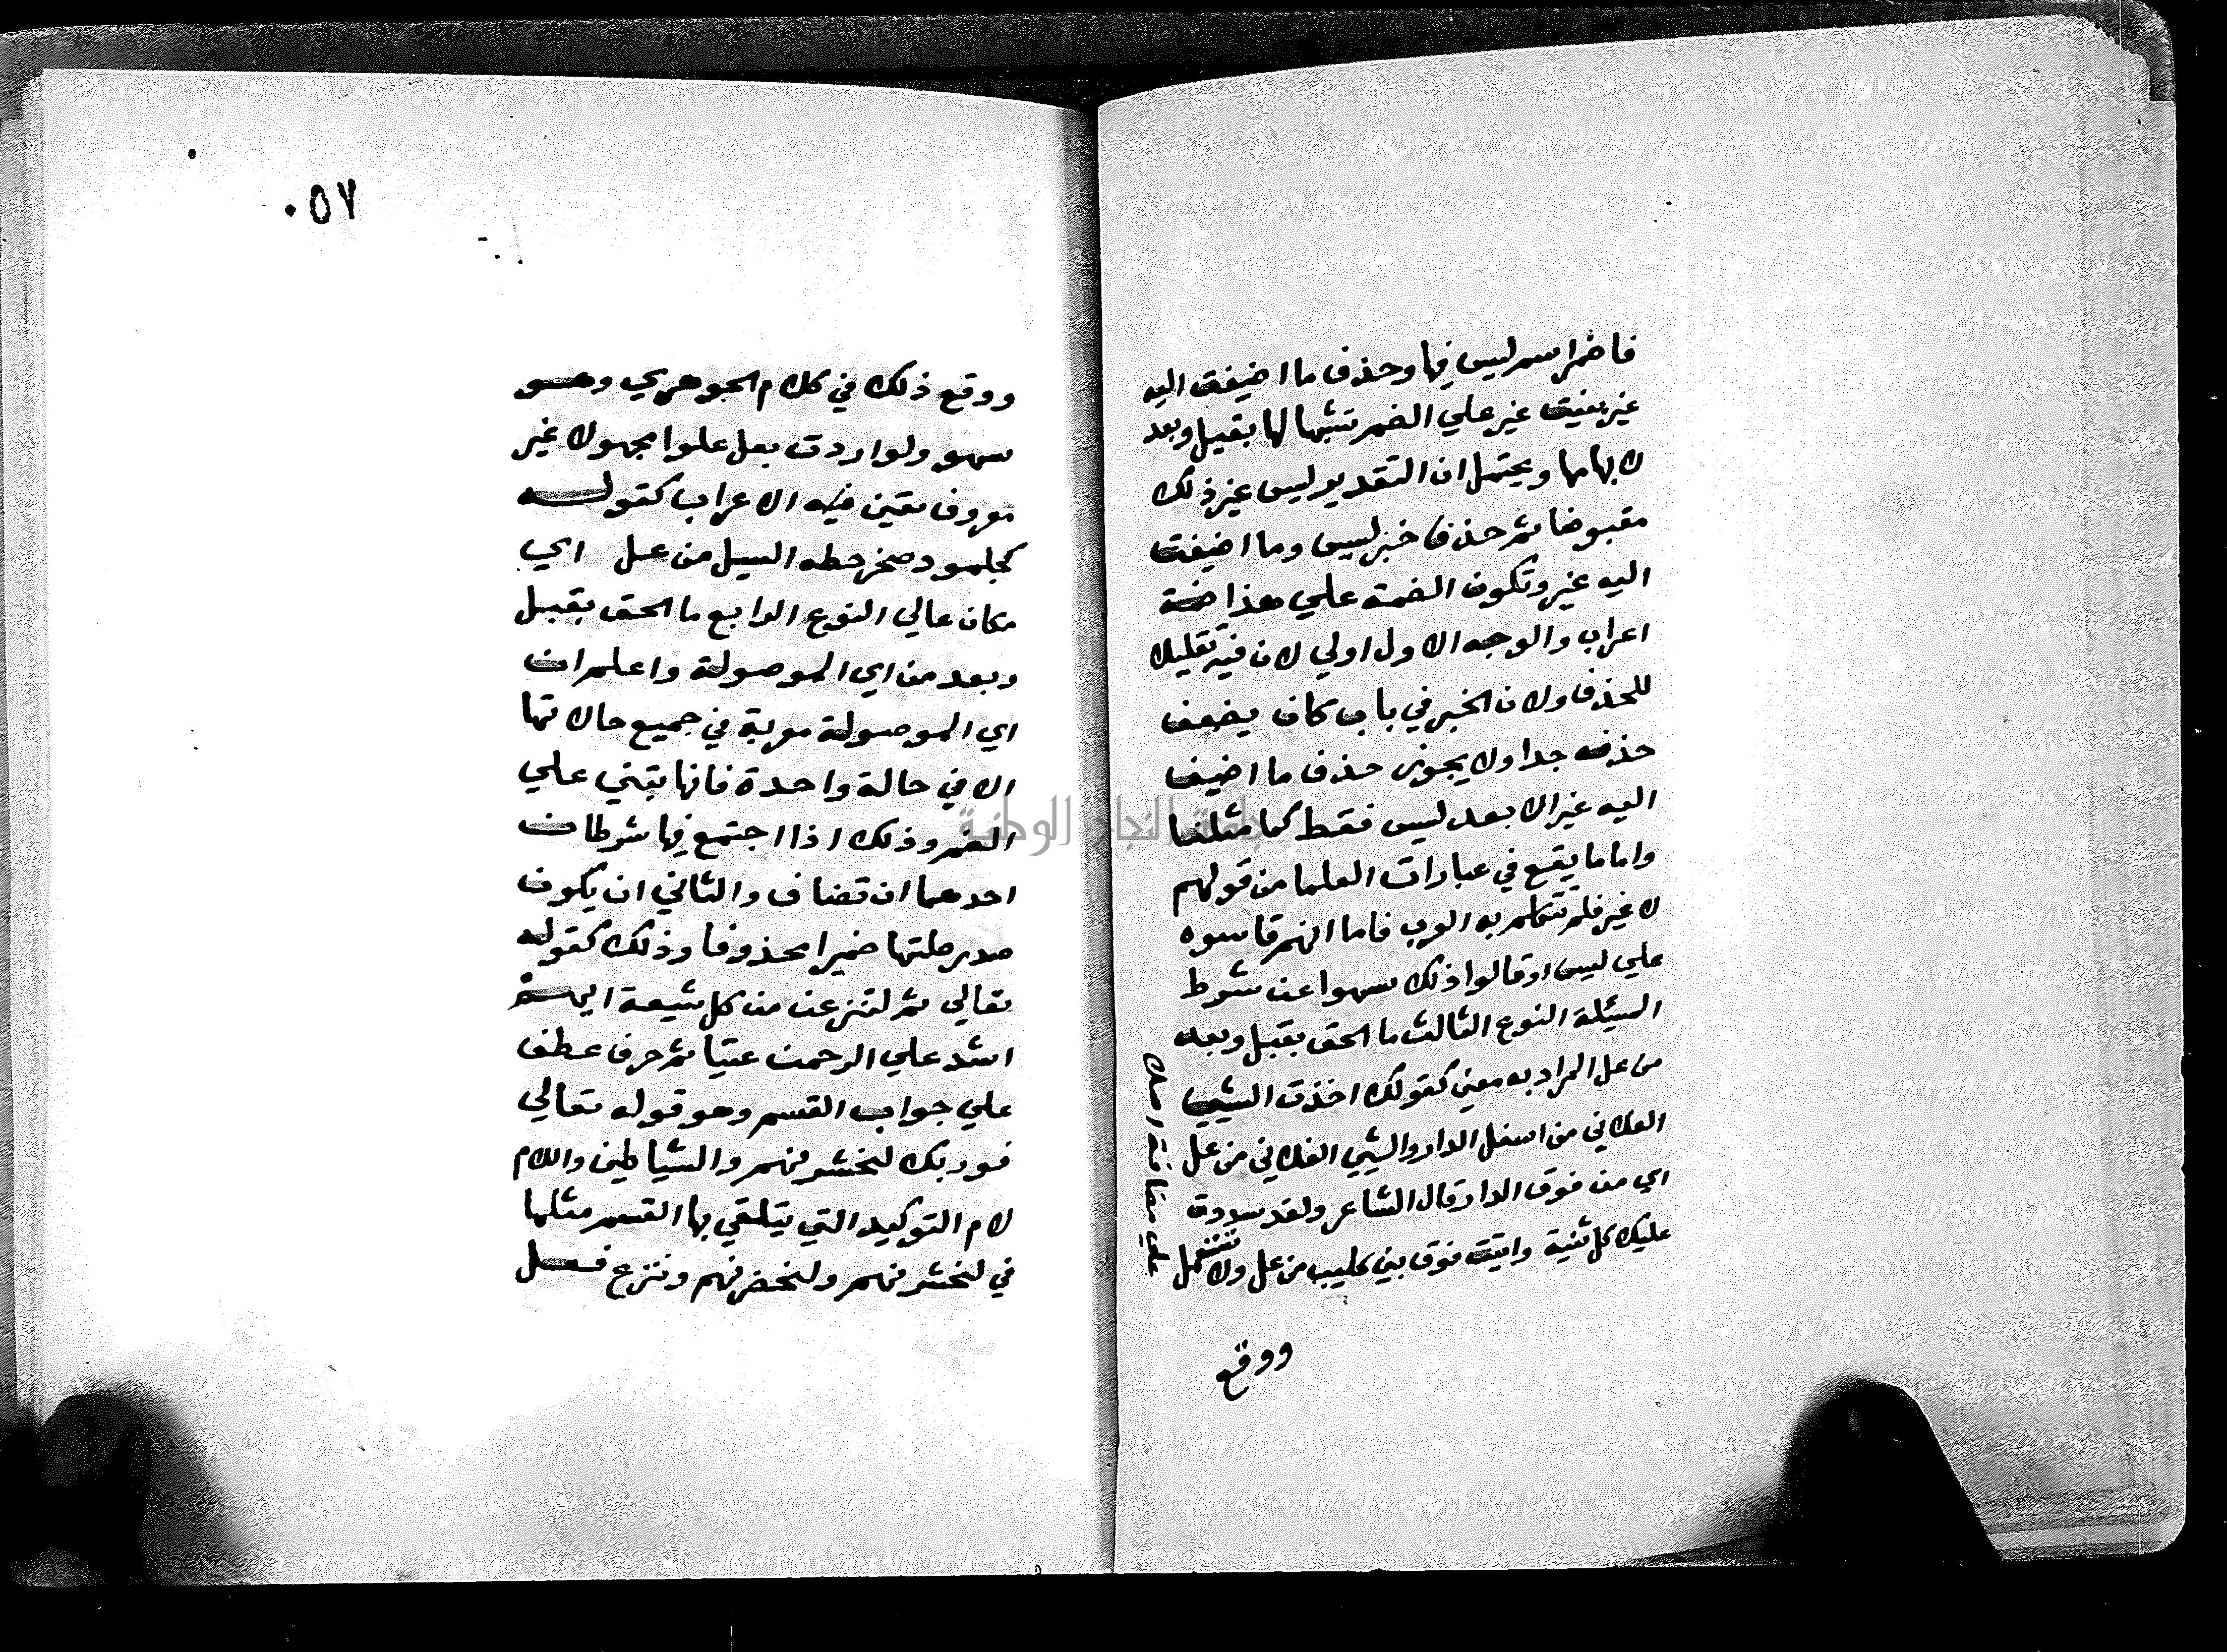 فاضمر اسم ليس فيها وحذف ما اضيفت اليه
غير بنيت غير علي الضم تشبها لها بقبل وبعد
لابهامها ويحتمل ان التقدير ليس غير ذلك
مقبوضا ثم حذف خبر ليس وما اضيفت
اليه غير وتكون الضمة علي هذا ضمة
اعراب والوجه الاول اولي لان فيه تقليلا
للحذف ولان الخبر في باب كان يضعف
حذفه جدا ولا يجوز حذف ما اضيف
اليه غير الا بعد ليس فقط كما مثلنا
واما ما يقع في عبارات العلما من قولهم
لا غير فلم تتكلم به العرب فاما انهم قاسوه
علي ليس او قالوا ذلك سهوا عن شرط
المسئلة النوع الثالث ما الحق بقبل وبعد
من عل المراد به معين كقولك اخذت الشيي
الفلاني من اسفل الدار والشيي الفلاني من عل
اي من فوق الدار قال الشاعر ولقد سددت
عليك كل ثنية واتيت فوق بني كليب من عل ولا تستعمل
علي مضافة اصلا
ووقع
٠٥٧
ووقع ذلك في كلام الجوهري وهو
سهو ولو اردت بعل علوا مجهولا غير
معروف تعين فيه الاعراب كقوله
كجلمود صخر حطه السيل من عل اي
مكان عالي النوع الرابع ما الحق بقبل
وبعد من اي الموصولة واعلم ان
اي الموصولة معربة في جميع حالاتها
الا في حالة واحدة فانها تبني علي
الضم وذلك اذا اجتمع فيها شرطان
احدهما ان تضاف والثاني ان يكون
صدر صلتها ضميرا محذوفا وذلك كقوله
تعالي ثم لننزعن من كل شيعة ايهم
اشد علي الرحمن عتيا ثم حرف عطف
علي جواب القسم وهو قوله تعالي
فوربك لنحشرنهم والشياطين واللام
لام التوكيد التي يتلقي بها القسم مثلها
في لنحشرنهم ولنحضرنهم وننزع فعل
جامعة النجاح الوطنية